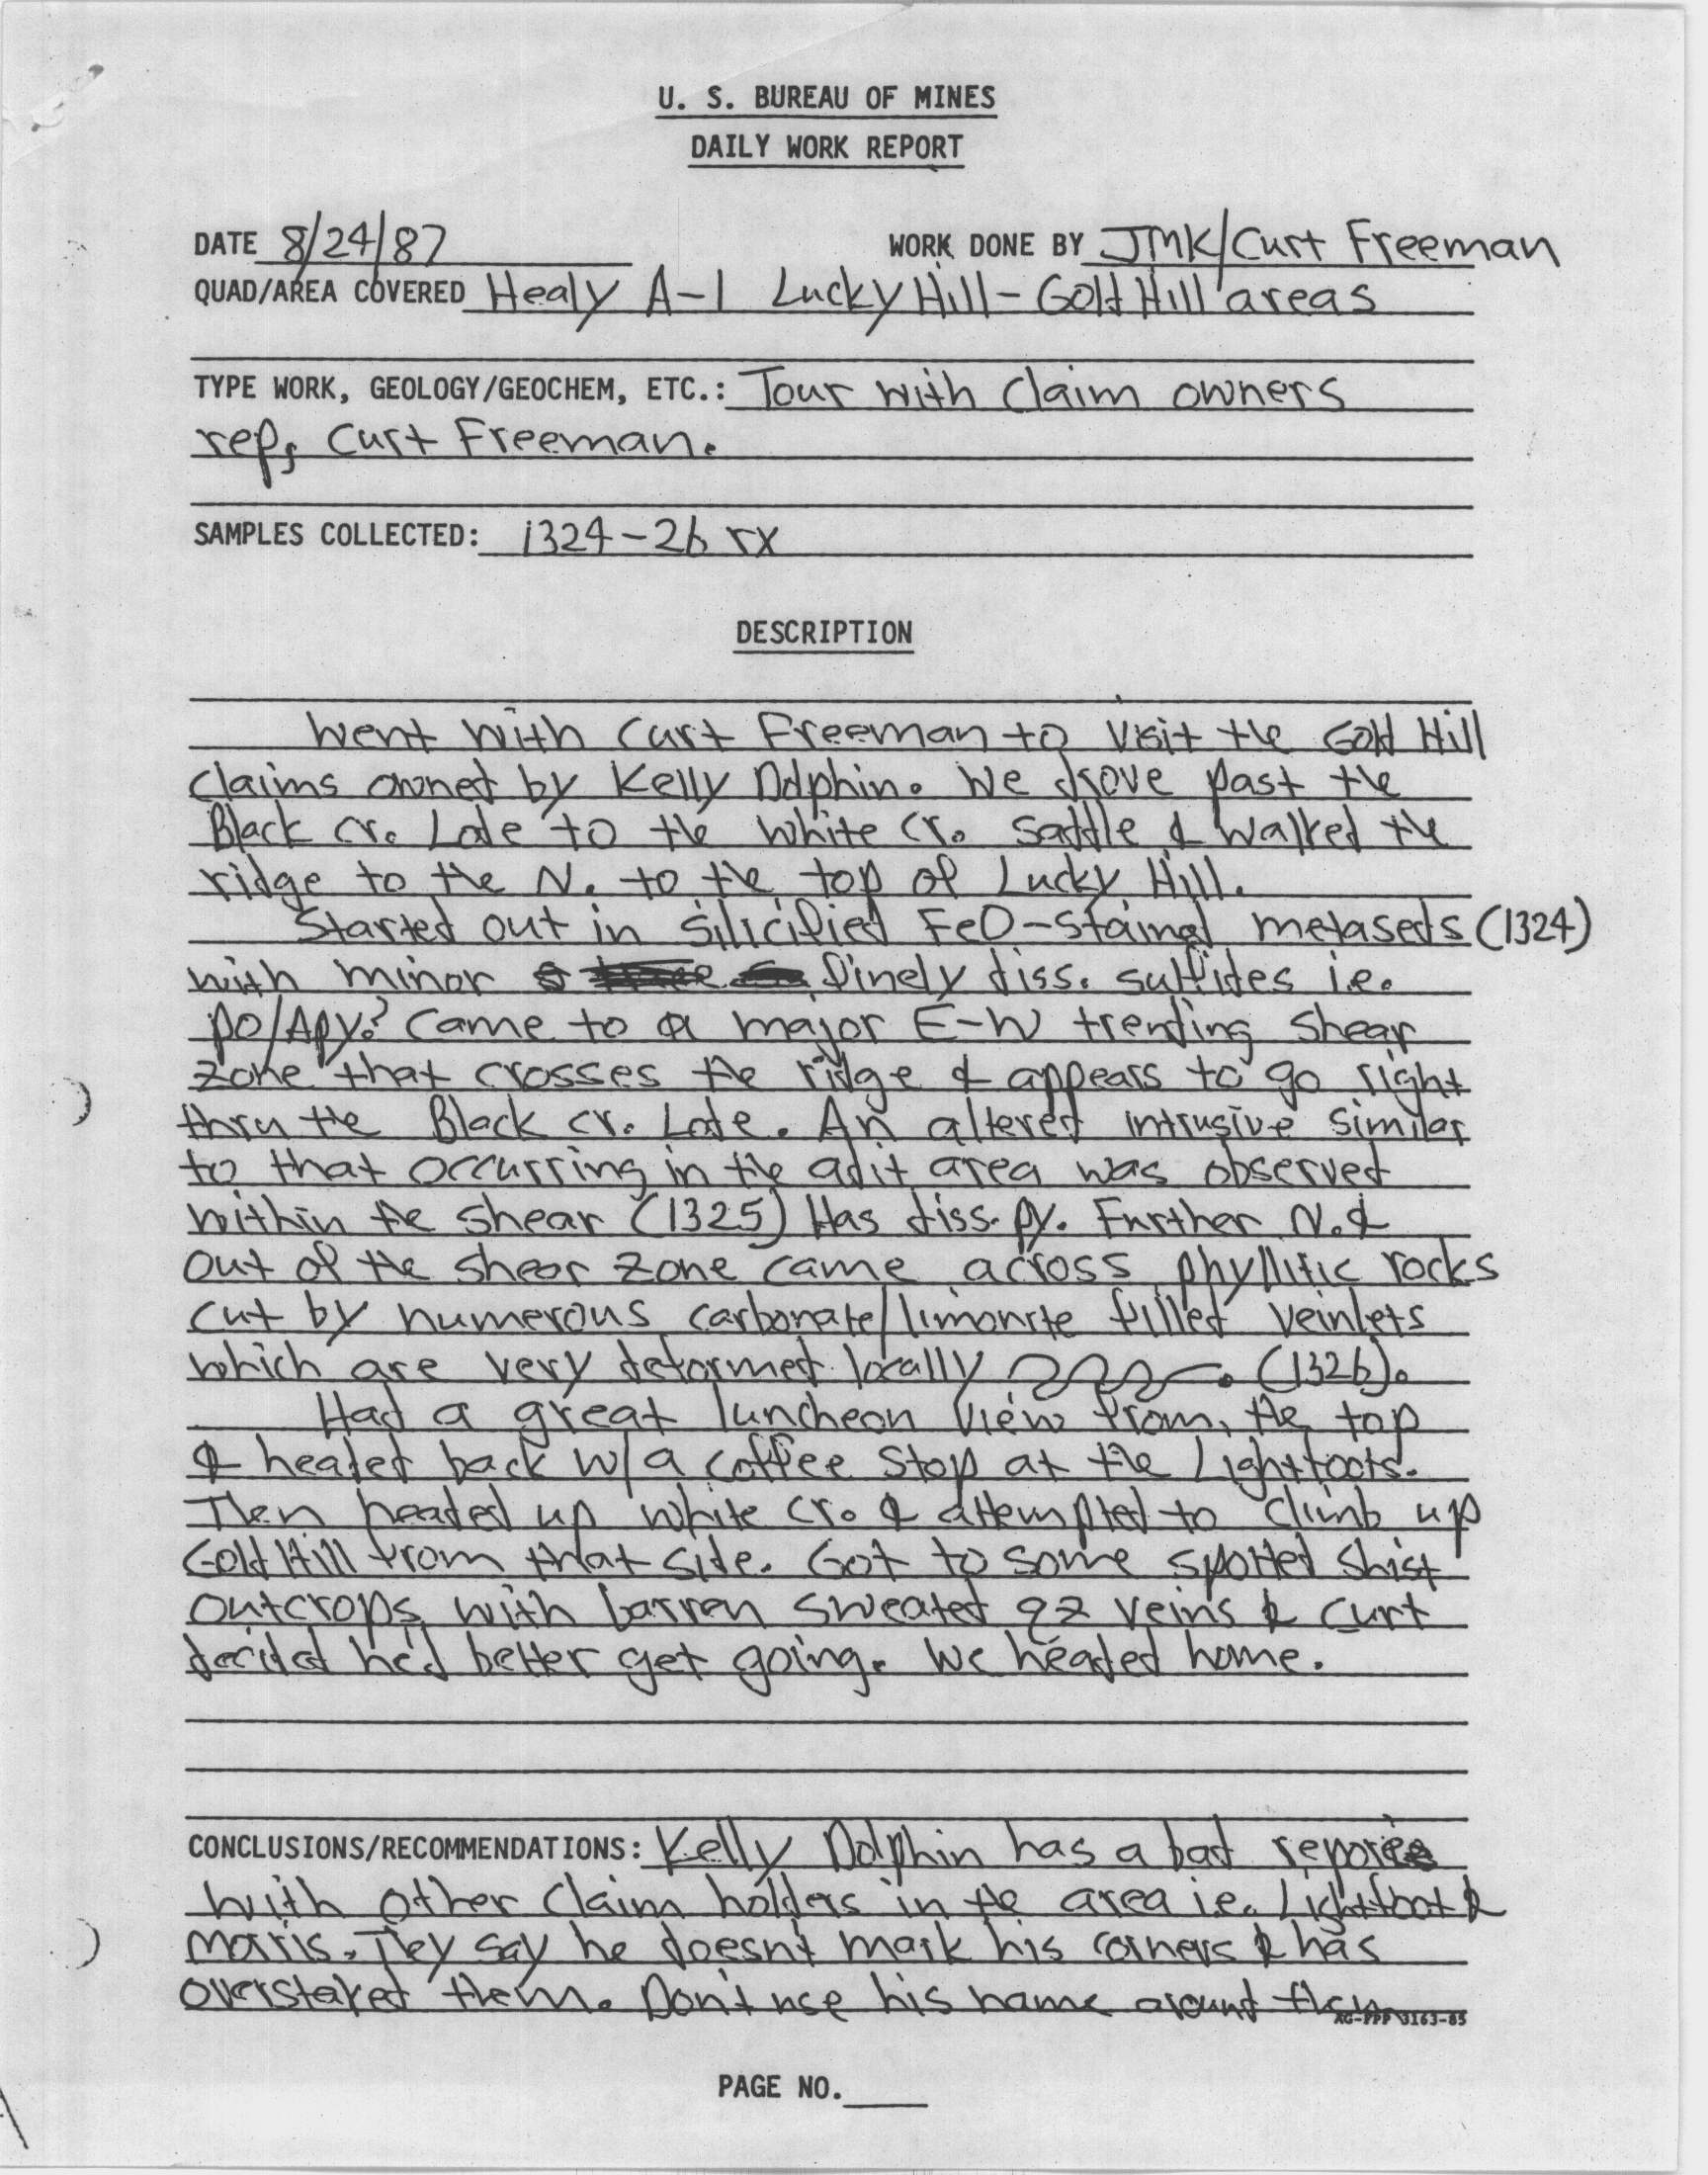 U. S. BUREAU OF MINES
DAILY WORK REPORT
DATE 8/24/87 WORK DONE BY JMK/Curt Freeman
QUAD/AREA COVERED Healy A-1 Lucky Hill - Gold Hill areas
TYPE WORK, GEOLOGY/GEOCHEM, ETC.: Tour with claim owners
rep, Curt Freeman.
SAMPLES COLLECTED: 1324-26 rx
DESCRIPTION
Went with Curt Freeman to visit the Gold Hill
claims owned by Kelly Dolphin. We drove past the
Black Cr. Lode to the White Cr. saddle & walked the
ridge to the N. to the top of Lucky Hill.
Started out in silicified FeO-stained metaseds (1324)
with minor finely diss. sulfides i.e.
po/Apy? Came to a major E-W trending shear
zone that crosses the ridge & appears to go right
thru the Black Cr. Lode. An altered intrusive similar
to that occurring in the adit area was observed
within the shear (1325) Has diss. py. Further N. &
out of the shear zone came across phyllitic rocks
cut by numerous carbonate/limonite filled veinlets
which are very deformed locally. (1326).
Had a great luncheon view from the top
& headed back w/a coffee stop at the Lightfoots.
Then headed up White Cr. & attempted to climb up
Gold Hill from that side. Got to some spotted shist
outcrops with barren sweated qz veins & Curt
decided he'd better get going. We headed home.
CONCLUSIONS/RECOMMENDATIONS: Kelly Dolphin has a bad
with other claim holders in the area i.e. Lightfoot &
Morris. They say he doesn't mark his corners & has
overstaked them. Don't use his name around them
AG-PPP 3163-85
PAGE NO.